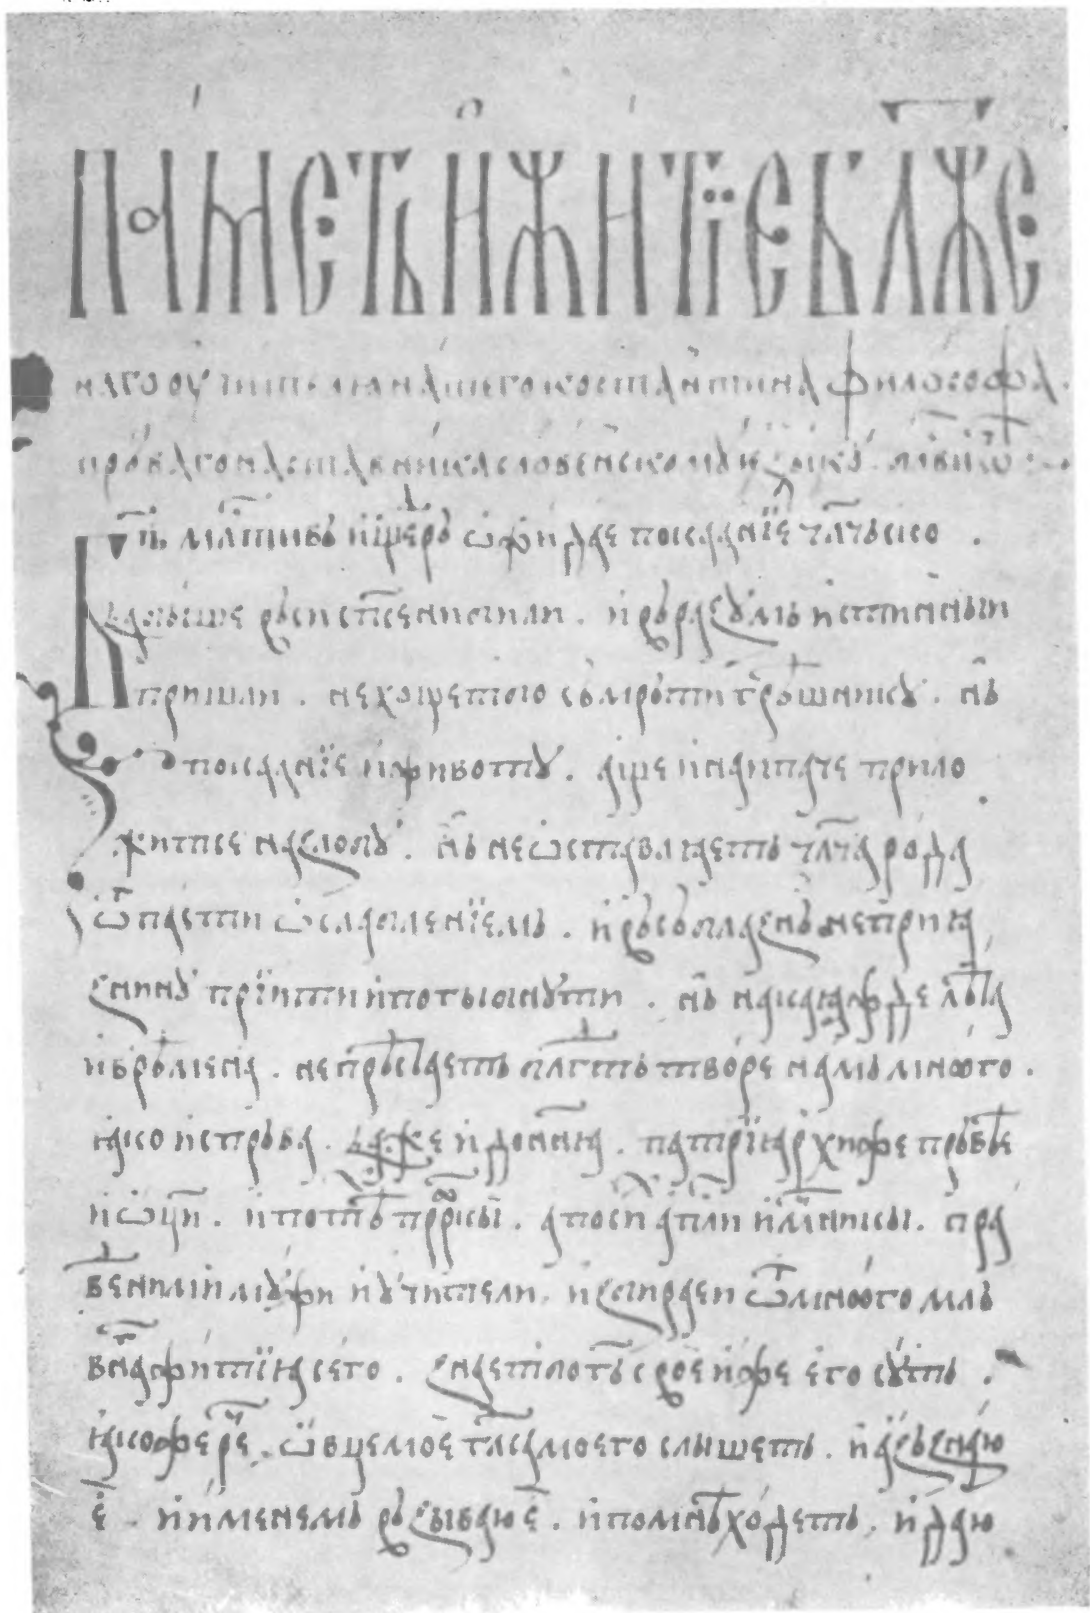 памет и житїе блаже
наго оучителꙗ нашего костантина философа.
прьваго наставника словѣнскому езыкꙋ. блв͠и ѿче
Б͠ь млс͠тивь и щедрь ѡжидае покаанїе чл͠чьско .
да бише вьси сп͠сени били . и вь разꙋмь истинныи
пришли . не хощет бо сьмрьти грѣшникꙋ . нь
покаанїе и животꙋ . аще и наипаче прило
житсе на злобꙋ . нь не ѡставлꙗеть чл͠ча рода
ѿпасти ѡслаблениїемь . и вь сьблазнь непрїꙗ
знинꙋ прїити и погыбнꙋти . нь на каꙗжде лѣта
и врѣмена . не прѣстаеть бл͠гть творе намь много .
ꙗкоже испрьва . даже и до нн͠ꙗ . патрїꙗрхи же прьвѣе
и ѡц͠и . и по тѣ пр͠ркы . а по си ап͠ли и мч͠никы . пра
веними мꙋжи и ꙋчители . и збирает ѿ многомль
внаа житїꙗ сего . знает бо г͠ь свое иже его сꙋть .
ꙗкоже реч͠е . ѡвце мое гл͠са моего слышеть . и азь знаю
е . и именемь вьзываю е . и по мнѣ ходеть . и даю